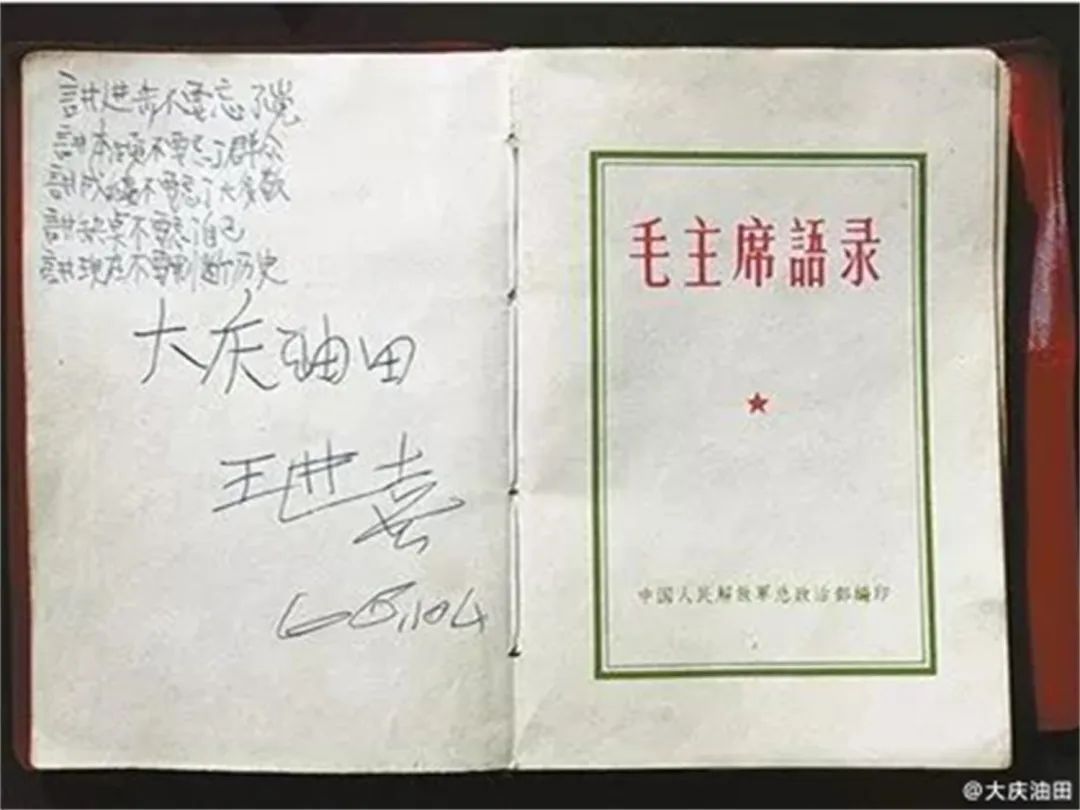 讲进步不要忘了党
讲本领不要忘了群众
讲成绩不要忘了大多数
讲缺点不要忘自己
讲现在不要割断历史
大庆油田
王进喜
毛主席語录
中国人民解放軍总政治部編印
@大庆油田